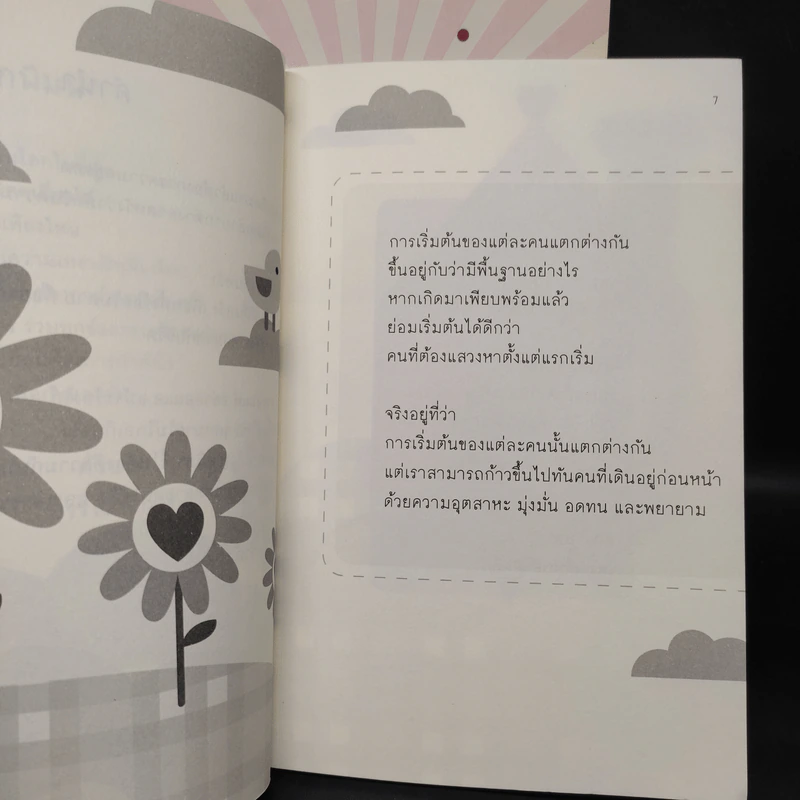 7
การเริ่มต้นของแต่ละคนแตกต่างกัน
ขึ้นอยู่กับว่ามีพื้นฐานอย่างไร
หากเกิดมาเพียบพร้อมแล้ว
ย่อมเริ่มต้นได้ดีกว่า
คนที่ต้องแสวงหาตั้งแต่แรกเริ่ม
จริงอยู่ที่ว่า
การเริ่มต้นของแต่ละคนนั้นแตกต่างกัน
แต่เราสามารถก้าวขึ้นไปทันคนที่เดินอยู่ก่อนหน้า
ด้วยความอุตสาหะ มุ่งมั่น อดทน และพยายาม